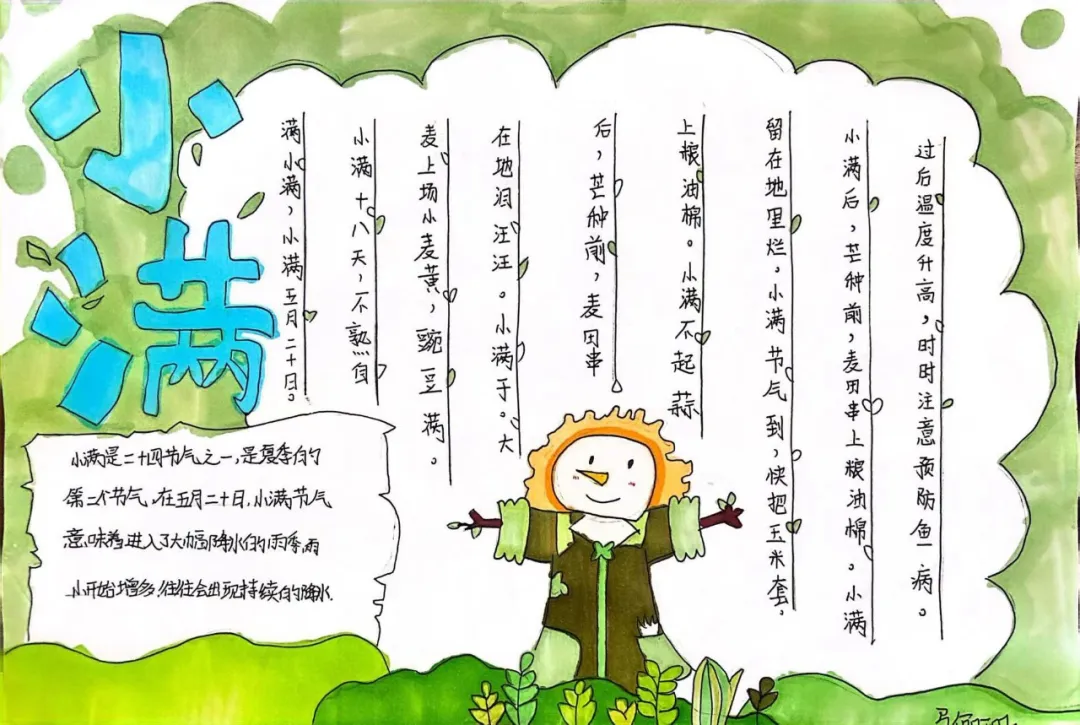 小满
满小满，小满五月二十日。
小满十八天，不熟自
麦上场小麦黄，豌豆满。
在地泪汪汪。小满于。大
后，芒种前，麦田串
上粮油棉。小满不起蒜
留在地里烂。小满节气到，快把玉米套。
小满后，芒种前，麦田串上粮油棉。小满
过后温度升高，时时注意预防鱼病。
小满是二十四节气之一，是夏季的
第二个节气，在五月二十日，小满节气
意味着进入了大幅降水的雨季，雨
水开始增多，往往会出现持续的降水．